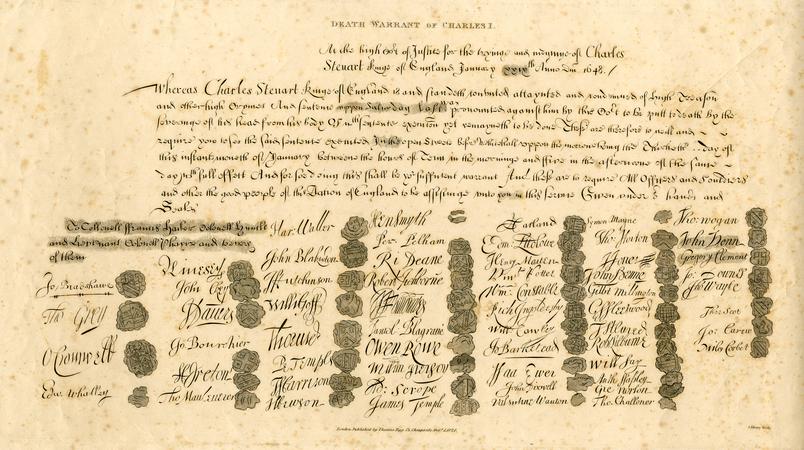 DEATH WARRANT OF CHARLES I.
At the high Cort of Justice for the tryinge and Charles
Steuart Kinge of England January xxixth Anno Dni 1648./
Whereas Charles Steuart Kinge of England is and standeth convicted attaynted and condemned of High Treason
and other high Crymes And sentence uppon Saturday last was pronounced against him by this Cort to be putt to death by the
severinge of his head from his body Of wch sentence execucon yet remayneth to be done These are therefore to will and
require you to see the said sentence executed In the open Streete before Whitehall uppon the morrowe being the Thirtieth day of
this instante moneth of January betweene the houres of Tenn in the morninge and ffive in the afternoone of the same
day with full effect And for soe doing this shall be yor sufficient warrant And these are to require All Officers and Souldiers
and other the good people of this Nation of England to be assistinge unto you in this service Given under our hands and
Seales
To Collonell ffrancis Hacker Colonell Huncks
and Lieutenant Colonell Phayre and to every
of them
Jo Bradshawe
Tho Grey
O Cromwell
Edw Whalley
M Livesey
John Okey
J Danvers
Jo Bourchier
H Ireton
Tho Mauleverer
Har Waller
John Blakiston
J Hutchinson
Willi Goff
T Pride
P Temple
T Harrison
J Hewson
Hen Smyth
Per Pelham
Ri Deane
Robert Tichborne
H Edwardes
Daniel Blagrave
Owen Rowe
William Purefoy
Ad Scrope
James Temple
A Garland
Edm Ludlowe
Henry Marten
Vinct Potter
Wm Constable
Rich Ingoldesby
Will Cawley
Jo Barkstead
Isaa Ewer
John Dixwell
Valentine Wauton
Symon Mayne
Tho Horton
J Jones
John Penne
Gilbt Millington
G Fleetwood
J Alured
Robt Lilburne
Will Say
Anth Stapley
Gre Norton
Tho Challoner
Tho Wogan
John Venn
Gregory Clement
Jo Downes
Tho Wayte
Tho Scot
Jo Carew
Miles Corbet